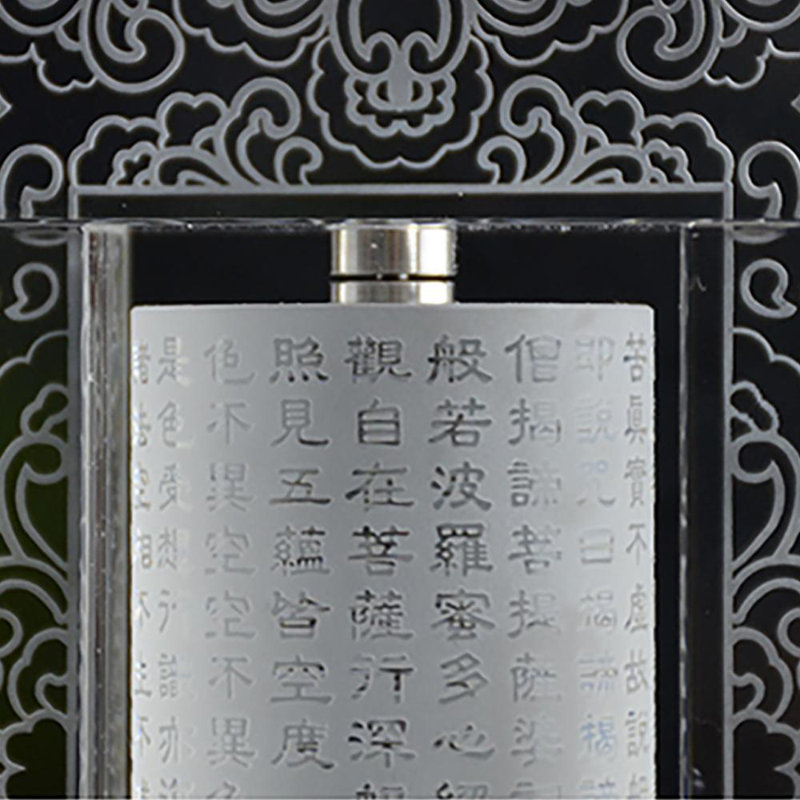 苦眞實不虛故說
即說咒曰揭諦揭諦
僧揭諦菩提薩婆
般若波羅蜜多心經
觀自在菩薩行深般
照見五蘊皆空度
色不異空空不異色
是色受想行識亦
空相不生不